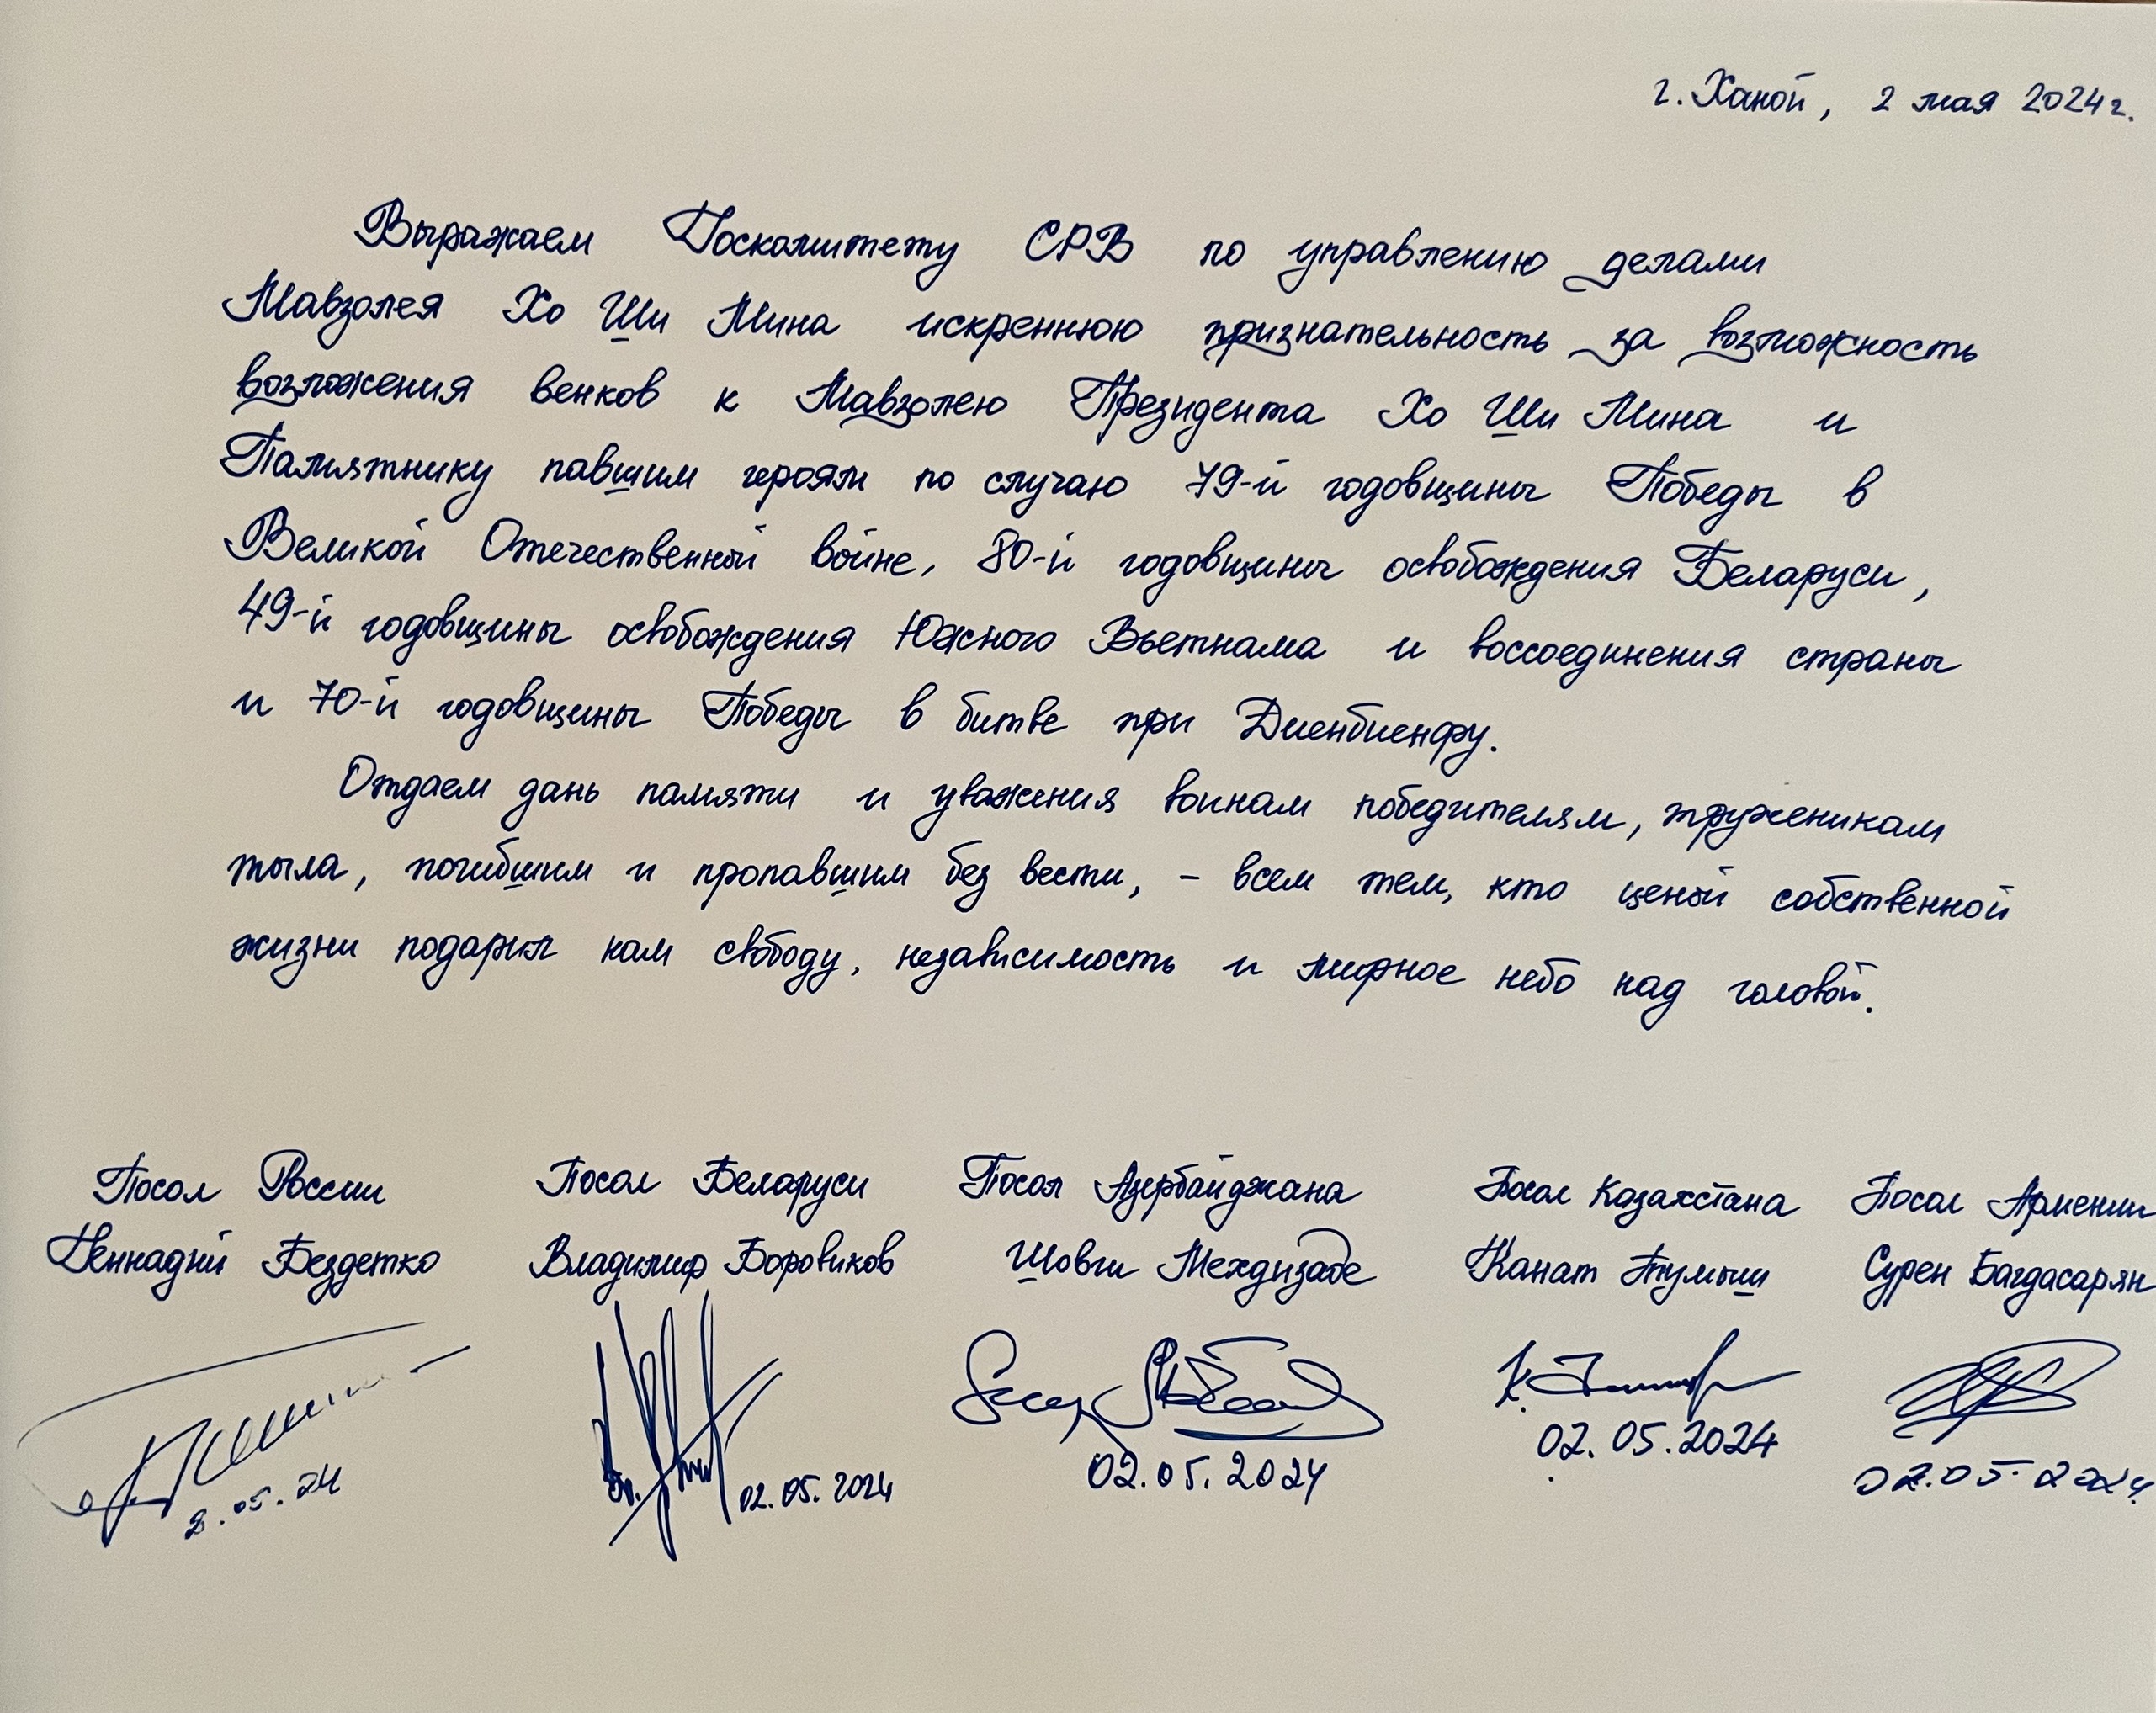 г. Ханой, 2 мая 2024 г.
Выражаем Госкомитету СРВ по управлению делами
Мавзолея Хо Ши Мина искреннюю признательность за возможность
возложения венков к Мавзолею Президента Хо Ши Мина и
Памятнику павшим героям по случаю 79-й годовщины Победы в
Великой Отечественной войне, 80-й годовщины освобождения Беларуси,
49-й годовщины освобождения Южного Вьетнама и воссоединения страны
и 70-й годовщины Победы в битве при Диенбиенфу.
Отдаем дань памяти и уважения воинам победителям, труженикам
тыла, погибшим и пропавшим без вести, - всем тем, кто ценой собственной
жизни подарил нам свободу, независимость и мирное небо над головой.
Посол России Посол Беларуси Посол Азербайджана Посол Казахстана Посол Армении
Геннадий Бездетко Владимир Боровиков Шовги Мехдизаде Канат Тумыш Сурен Багдасарян
2.05.24 02.05.2024 02.05.2024 02.05.2024 02.05.2024